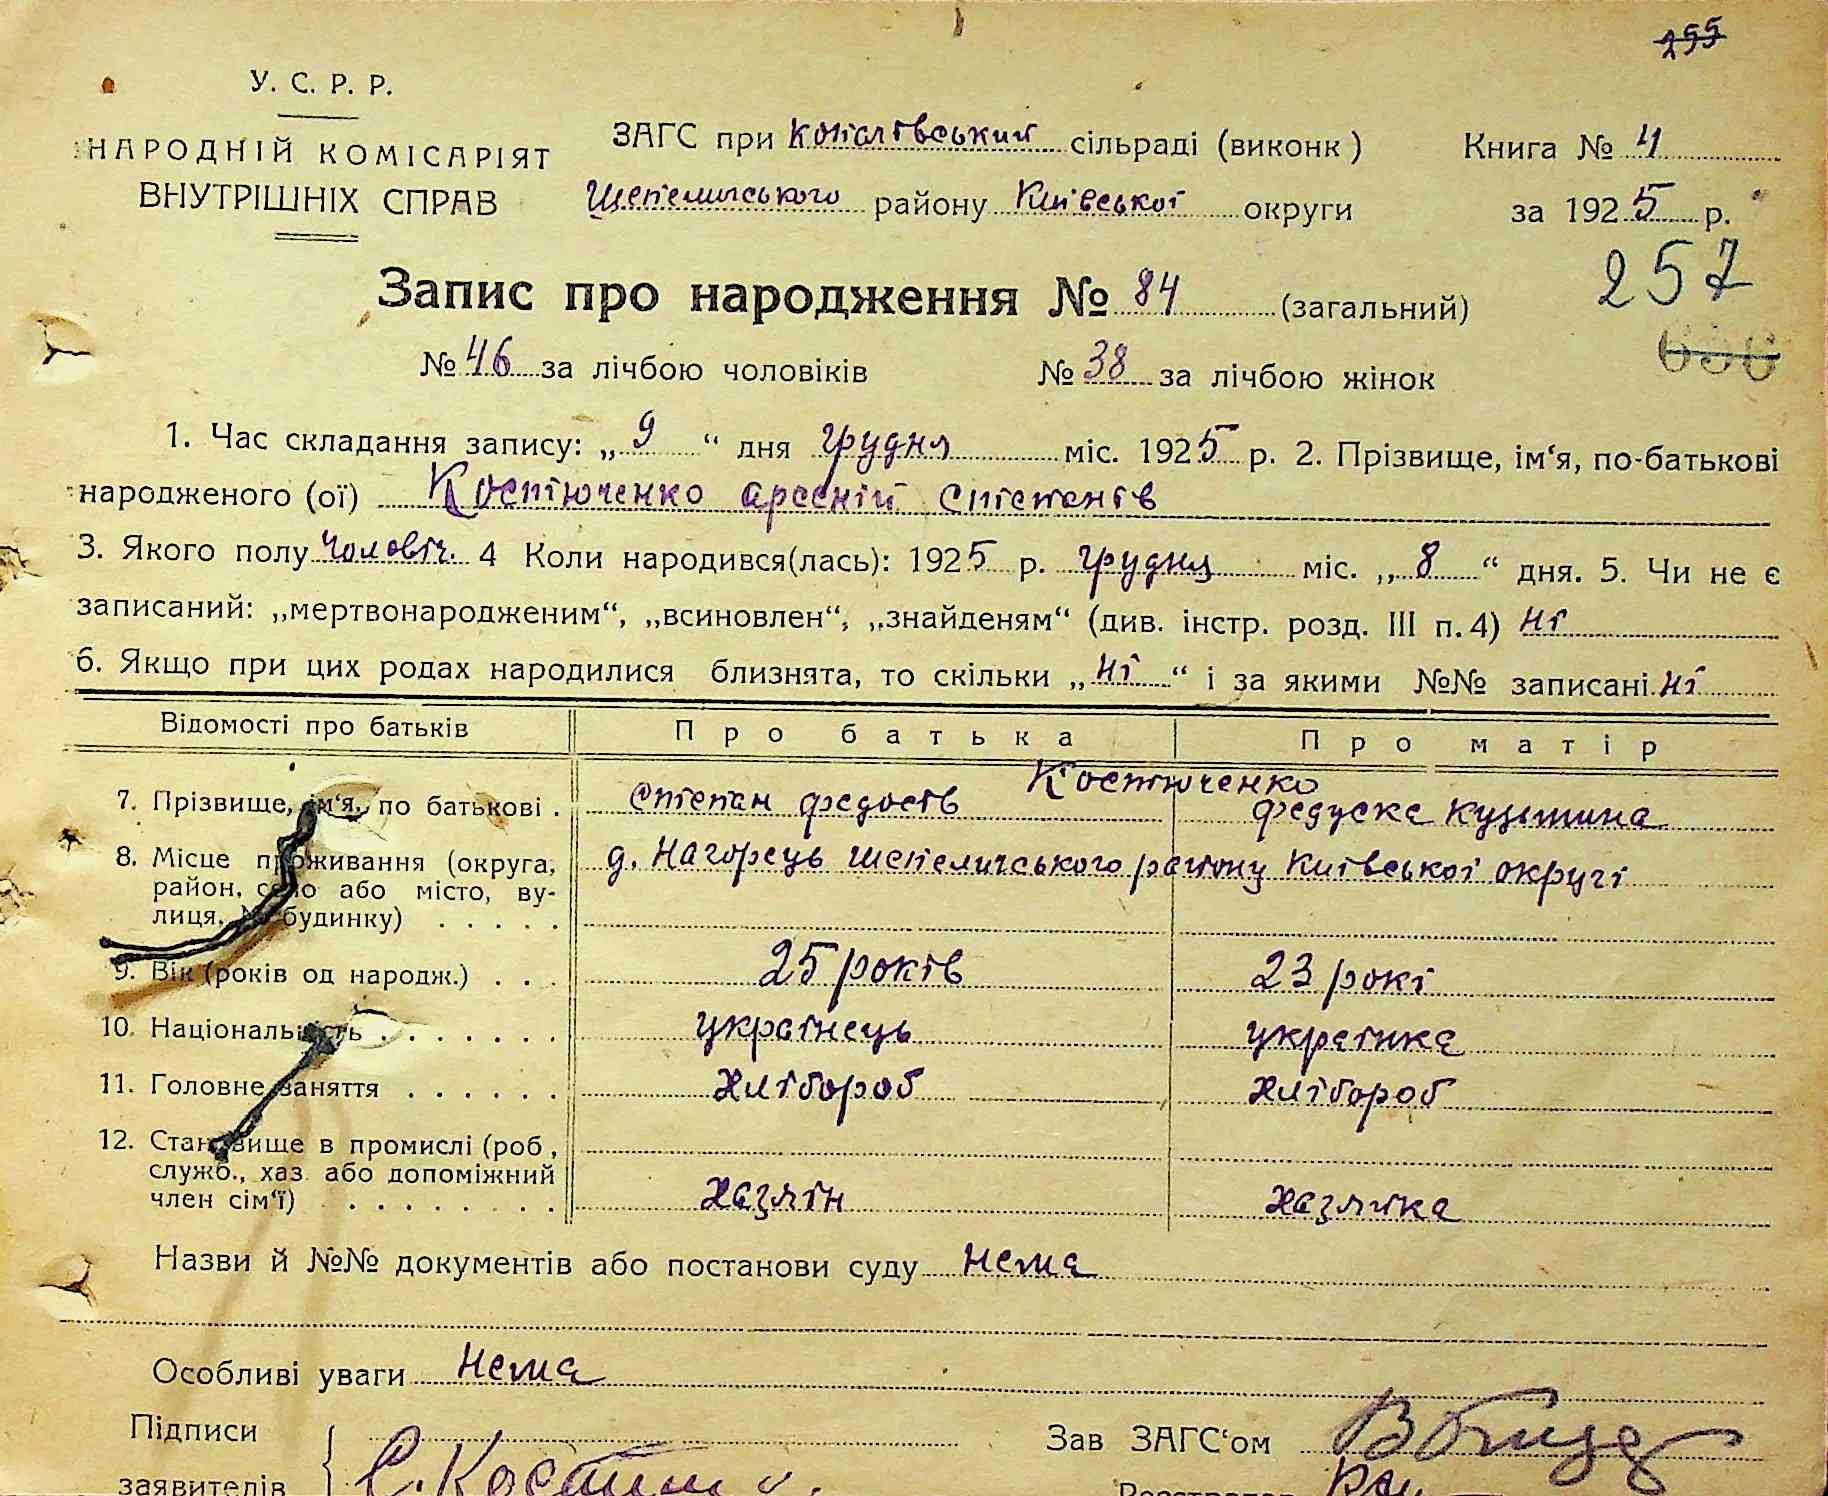 255
У. С. Р. Р.
НАРОДНІЙ КОМІСАРІЯТ
ВНУТРІШНІХ СПРАВ
ЗАГС при Копачівський сільраді (виконк)
Шепелицького району Київської округи
Книга № 4
за 1925 р.
257
Запис про народження № 84 (загальний)
№ 46 за лічбою чоловіків № 38 за лічбою жінок
1. Час складання запису: „9“ дня грудня міс. 1925 р. 2. Прізвище, ім‘я, по-батькові
народженого (ої) Костюченко арсеній степанів
3. Якого полу чоловіч. 4 Коли народився(лась): 1925 р. грудня міс. „8“ дня. 5. Чи не є
записаний: „мертвонародженим“, „всиновлен“, „знайденям“ (див. інстр. розд. III п. 4) ні
6. Якщо при цих родах народилися близнята, то скільки „ні“ і за якими №№ записані ні
Відомості про батьків Про батька Про матір
Костюченко
7. Прізвище, ім‘я, по батькові . степан федосів федуска Кузьмина
8. Місце проживання (округа, д. Нагорець шепелицького району Київської округі
район, село або місто, ву-
лиця, № будинку) . . . . .
9. Вік (років од народж.) . . . 25 років 23 рокі
10. Національність . . . . . . . українець українка
11. Головне заняття . . . . . . хлібороб хлібороб
12. Становище в промислі (роб,
служб., хаз або допоміжний
член сім‘ї) . . . . . . . . хазяін хазяйка
Назви й №№ документів або постанови суду нема
Особливі уваги нема
Підписи
заявителів
Зав ЗАГС‘ом